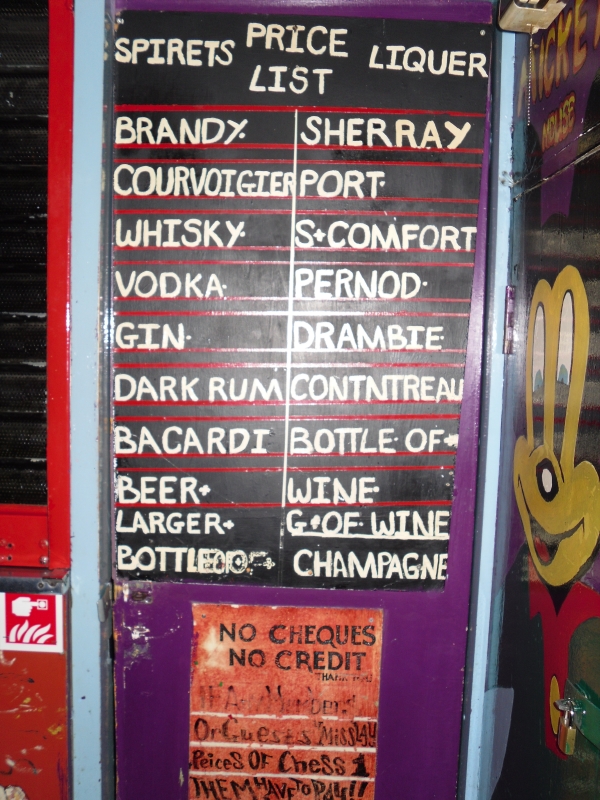 SPIRETS PRICE LIQUER
LIST
BRANDY. SHERRAY
COURVOIGIER PORT.
WHISKY. S+COMFORT
VODKA. PERNOD.
GIN. DRAMBIE
DARK RUM CONTNTREAU
BACARDI BOTTLE OF
BEER+ WINE.
LARGER+ G+OF WINE
BOTTLEOF CHAMPAGNE
NO CHEQUES
NO CREDIT
THANK YOU
IF Any Members
Or Guests Misslay
Peices OF Chess 1
THEM HAVE TO PAY!!
TICKET
MOUSE